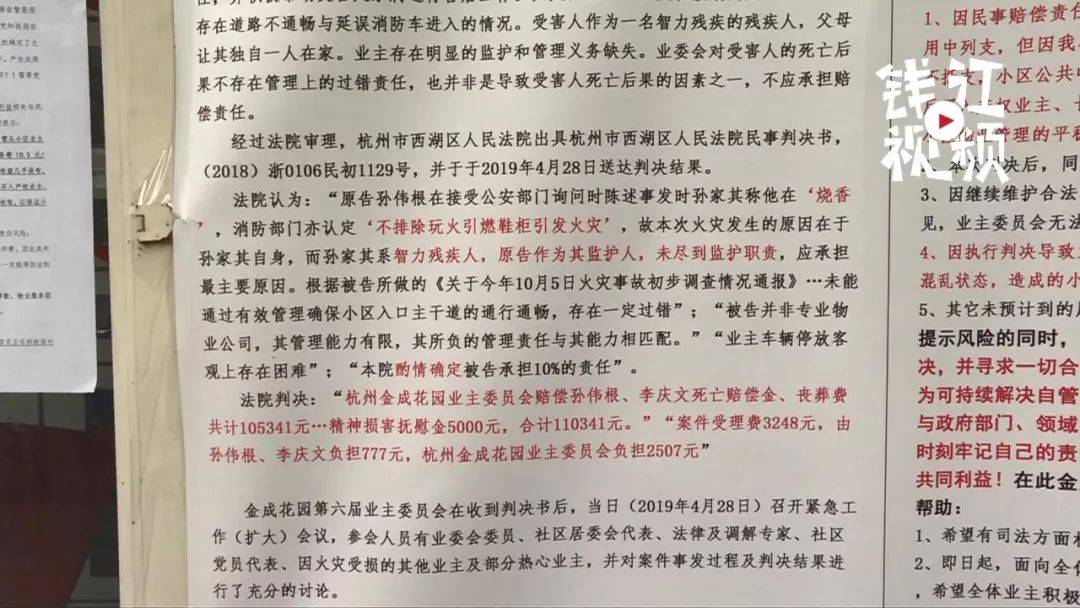 存在道路不通畅与延误消防车进入的情况。受害人作为一名智力残疾的残疾人，父母
让其独自一人在家。业主存在明显的监护和管理义务缺失。业委会对受害人的死亡后
果不存在管理上的过错责任，也并非是导致受害人死亡后果的因素之一，不应承担赔
偿责任。
经过法院审理，杭州市西湖区人民法院出具杭州市西湖区人民法院民事判决书，
（2018）浙0106民初1129号，并于于2019年4月28日送达判决结果。
法院认为：“原告孙伟根在接受公安部门询问时陈述事发时孙家其称他在‘烧香
’，消防部门亦认定‘不排除玩火引燃鞋柜引发火灾’，故本次火灾发生的原因在于
孙家其自身，而孙家其系智力残疾人，原告作为其监护人，未尽到监护职责，应承担
最主要原因。根据被告所做的《关于今年10月5日火灾事故初步调查情况通报》…未能
通过有效管理确保小区入口主干道的通行通畅，存在一定过错”；“被告并非专业物
业公司，其管理能力有限，其所负的管理责任与其能力相匹配。”“业主车辆停放客
观上存在困难”；“本院酌情确定被告承担10%的责任”。
法院判决：“杭州金成花园业主委员会赔偿孙伟根、李庆文死亡赔偿金、丧葬费
共计105341元…精神损害抚慰金5000元，合计110341元。”“案件受理费3248元，由
孙伟根、李庆文负担777元，杭州金成花园业主委员会负担2507元”
金成花园第六届业主委员会在收到判决书后，当日（2019年4月28日）召开紧急工
作（扩大）会议，参会人员有业委会委员、社区居委会代表、法律及调解专家、社区
党员代表、因火灾受损的其他业主及部分热心业主，并对案件事发过程及判决结果进
行了充分的讨论。
1、因民事赔偿责任
用中列支，但因我
小区公共
权业主、
管理的平
决后，同
3、因继续维护合法
见，业主委员会无法
4、因执行判决导致
混乱状态，造成的小
5、其它未预计到的
提示风险的同时，
决，并寻求一切合
为可持续解决自管
与政府部门、领域
时刻牢记自己的责
共同利益！在此金
帮助：
1、希望有司法方面
2、即日起，面向全体
，希望全体业主积极
钱江视频